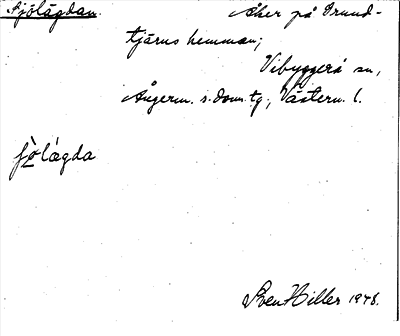 Sjölägdan. Åker på Grund-
tjärns hemman;
Vibyggerå sn,
Ångerm. s. doms. tg., Västern. l.
fö̀lágda
Sven Hiller 1948.